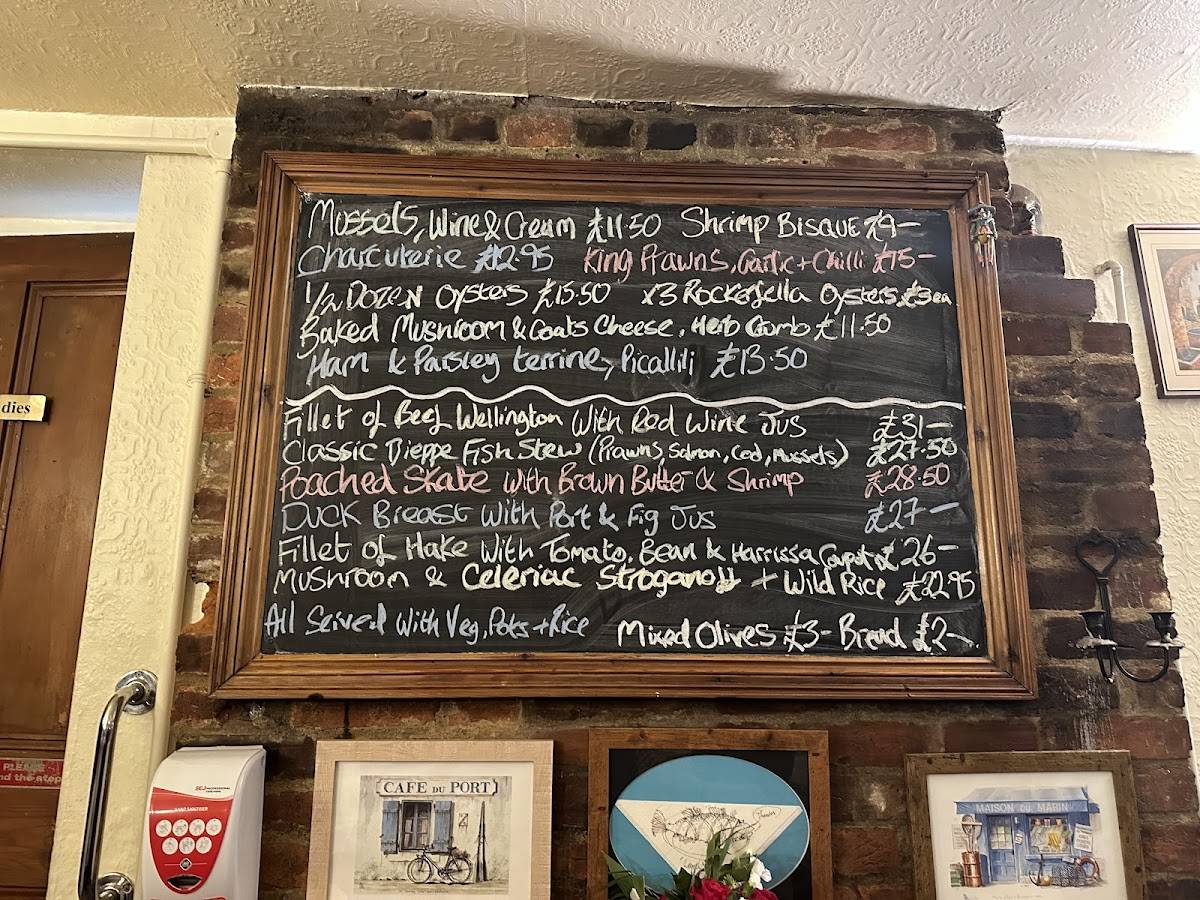 Mussels, Wine & Cream £11.50 Shrimp Bisque £9—
Charcuterie £12.95 King Prawns, Garlic + Chilli £15—
1/2 Dozen Oysters £15.50 x3 Rockerfella Oysters £3ea
Baked Mushroom & Goats Cheese, Herb Crumb £11.50
Ham & Parsley terrine, Picallili £13.50
Fillet of Beef Wellington With Red Wine Jus £31—
Classic Dieppe Fish Stew (Prawns, Salmon, Cod, Mussels) £27.50
Poached Skate With Brown Butter & Shrimp £28.50
Duck Breast With Port & Fig Jus £27—
Fillet of Hake With Tomato, Bean & Harrissa £26—
Mushroom & Celeriac Stroganoff + Wild Rice £22.95
All Served With Veg, Pots + Rice Mixed Olives £3— Bread £2—
dies
PLEASE
nd the step
CAFE DU PORT
MAISON DU MARIN